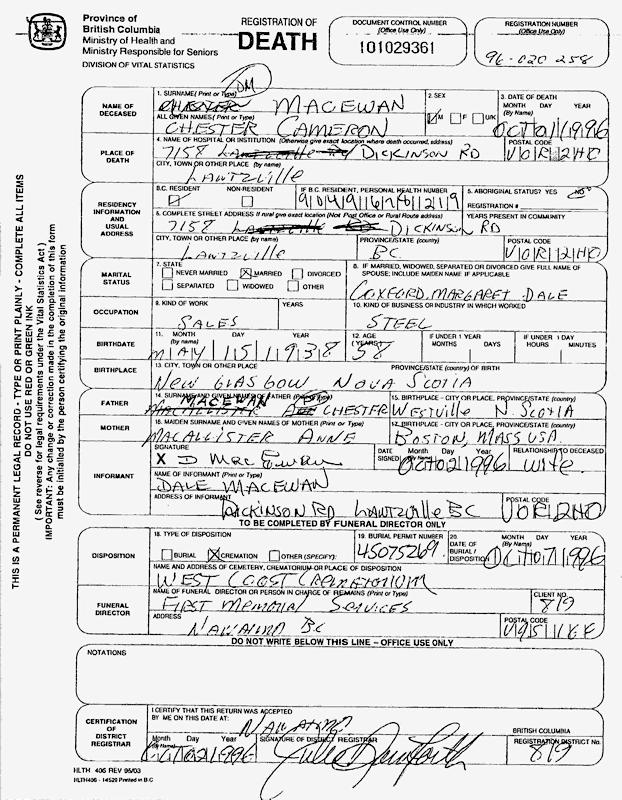 Province of
British Columbia
Ministry of Health and
Ministry Responsible for Seniors
DIVISION OF VITAL STATISTICS
REGISTRATION OF
DEATH
DOCUMENT CONTROL NUMBER
(Office Use Only)
101029361
REGISTRATION NUMBER
(Office Use Only)
96-020 258
THIS IS A PERMANENT LEGAL RECORD - TYPE OR PRINT PLAINLY - COMPLETE ALL ITEMS
DO NOT USE RED OR GREEN INK
( See reverse for legal requirements under the Vital Statistics Act )
IMPORTANT: Any change or correction made in the completion of this form
must be initialled by the person certifying the original information
NAME OF DECEASED
1. SURNAME (Print or Type) DM
CHESTER MACEWAN
ALL GIVEN NAMES (Print or Type)
CHESTER CAMERON
2. SEX
M F U/K
3. DATE OF DEATH
MONTH DAY YEAR
(By Name)
OCT 01 1996
PLACE OF DEATH
4. NAME OF HOSPITAL OR INSTITUTION (Otherwise give exact location where death occurred, address)
7158 LANTZVILLE RD DICKINSON RD
POSTAL CODE
V0R 2H0
CITY, TOWN OR OTHER PLACE (by name)
LANTZVILLE
RESIDENCY INFORMATION AND USUAL ADDRESS
B.C. RESIDENT NON-RESIDENT
IF B.C. RESIDENT, PERSONAL HEALTH NUMBER
5. ABORIGINAL STATUS? YES NO
REGISTRATION #
6. COMPLETE STREET ADDRESS If rural give exact location (Not Post Office or Rural Route address)
YEARS PRESENT IN COMMUNITY
7158 LANTZVILLE RD DICKINSON RD
CITY, TOWN OR OTHER PLACE (by name) PROVINCE/STATE (country) POSTAL CODE
LANTZVILLE BC V0R 2H0
MARITAL STATUS
7. STATE
NEVER MARRIED MARRIED DIVORCED
SEPARATED WIDOWED OTHER
8. IF MARRIED, WIDOWED, SEPARATED OR DIVORCED GIVE FULL NAME OF
SPOUSE; INCLUDE MAIDEN NAME IF APPLICABLE
COXFORD, MARGARET DALE
OCCUPATION
9. KIND OF WORK YEARS
SALES
10. KIND OF BUSINESS OR INDUSTRY IN WHICH WORKED
STEEL
BIRTHDATE
11. MONTH DAY YEAR
(By Name)
MAY 15 1938
12. AGE
(YEARS)
58
IF UNDER 1 YEAR
MONTHS DAYS
IF UNDER 1 DAY
HOURS MINUTES
BIRTHPLACE
13. CITY, TOWN OR OTHER PLACE PROVINCE/STATE (country) OF BIRTH
NEW GLASGOW NOVA SCOTIA
FATHER
14. SURNAME AND GIVEN NAMES OF FATHER (Print or Type)
MACEWAN
MACALLISTER CHESTER
15. BIRTHPLACE - CITY OR PLACE, PROVINCE/STATE (country)
WESTVILLE N. SCOTIA
MOTHER
16. MAIDEN SURNAME AND GIVEN NAMES OF MOTHER (Print or Type)
MACALLISTER ANNE
17. BIRTHPLACE - CITY OR PLACE, PROVINCE/STATE (country)
BOSTON, MASS USA.
INFORMANT
SIGNATURE
X D MacEwan
DATE SIGNED
Month Day Year
(By Name)
OCT 02 1996
RELATIONSHIP TO DECEASED
WIFE
NAME OF INFORMANT (Print or Type)
DALE MACEWAN
ADDRESS OF INFORMANT
DICKINSON RD LANTZVILLE BC
POSTAL CODE
V0R 2H0
TO BE COMPLETED BY FUNERAL DIRECTOR ONLY
DISPOSITION
18. TYPE OF DISPOSITION
BURIAL CREMATION OTHER (SPECIFY):
19. BURIAL PERMIT NUMBER
45075269
20. DATE OF BURIAL / DISPOSITION
MONTH DAY YEAR
(By Name)
OCT 07 1996
NAME AND ADDRESS OF CEMETERY, CREMATORIUM OR PLACE OF DISPOSITION
WEST COAST CREMATORIUM
FUNERAL DIRECTOR
NAME OF FUNERAL DIRECTOR OR PERSON IN CHARGE OF REMAINS (Print or Type)
FIRST MEMORIAL SERVICES
CLIENT NO.
819
ADDRESS
NANAIMO BC
POSTAL CODE
DO NOT WRITE BELOW THIS LINE - OFFICE USE ONLY
NOTATIONS
CERTIFICATION OF DISTRICT REGISTRAR
I CERTIFY THAT THIS RETURN WAS ACCEPTED
BY ME ON THIS DATE AT:
NANAIMO
BRITISH COLUMBIA
Month Day Year
(By Name)
OCT 02 1996
SIGNATURE OF DISTRICT REGISTRAR
REGISTRATION DISTRICT No.
819
HLTH 406 REV 95/03
HLTH406 - 14529 Printed in B.C